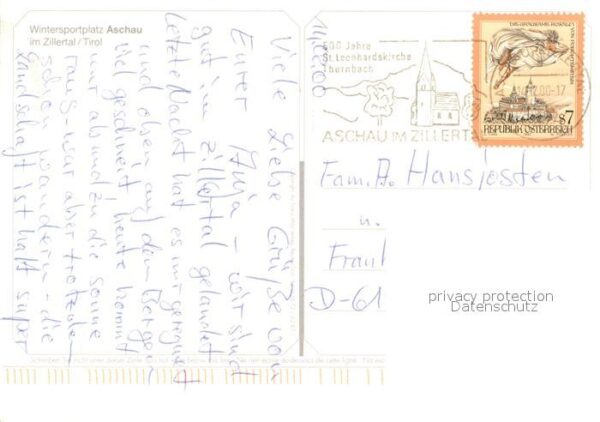 Wintersportplatz Aschau
im Zillertal / Tirol
Viele liebe Grüße von
Eurer Anja - wir sind
gut im Zillertal gelandet
letzte Nacht hat es nur geregnet
und oben auf dem Bergen
viel geschneit heute kommt
nur ab und zu die Sonne
raus - war aber trotzdem
schön wandern - die
Landschaft ist halt super
500 Jahre
St. Leonhardskirche
ASCHAU IM ZILLERT
00-17
REPUBLIK ÖSTERREICH
S7
Fam. A. Hansjosten
u.
D-61
privacy protection
Datenschutz